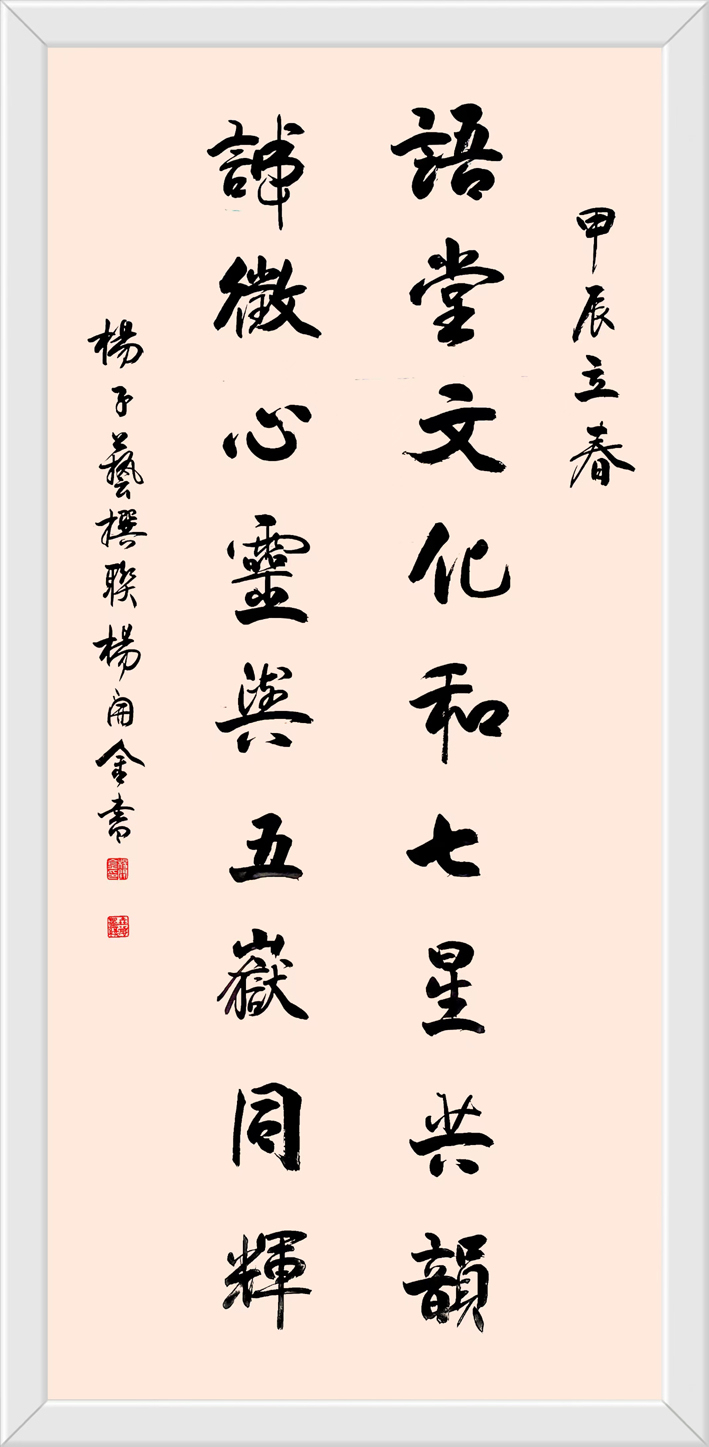 甲辰立春
語堂文化和七星共韻
誧徵心靈與五嶽同輝
楊子藝撰聯楊開金書